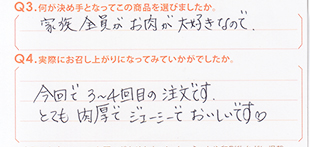 Q3.何が決め手となってこの商品を選びましたか。
家族全員がお肉が大好きなので。
Q4.実際にお召し上がりになってみていかがでしたか。
今回で3~4回目の注文です。
とても肉厚でジューシーでおいしいです♡